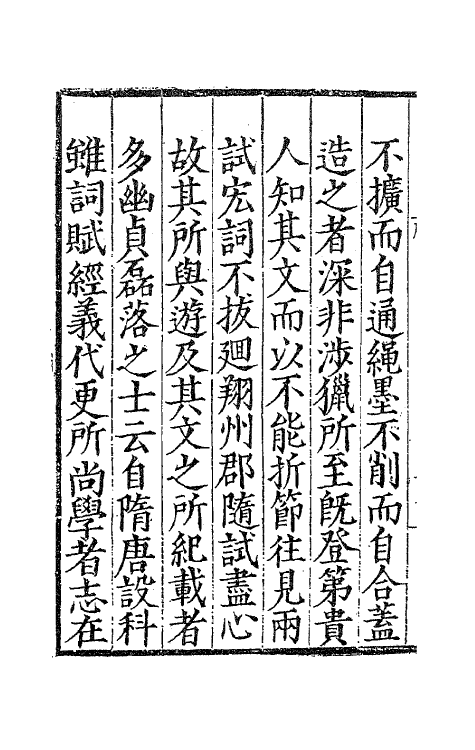 不擴而自通繩墨不削而自合蓋
造之者深非涉獵所至旣登第貴
人知其文而以不能折節往見兩
試宏詞不拔廻翔州郡隨試盡心
故其所與遊及其文之所紀載者
多幽貞磊落之士云自隋唐設科
雖詞賦經義代更所尚學者志在